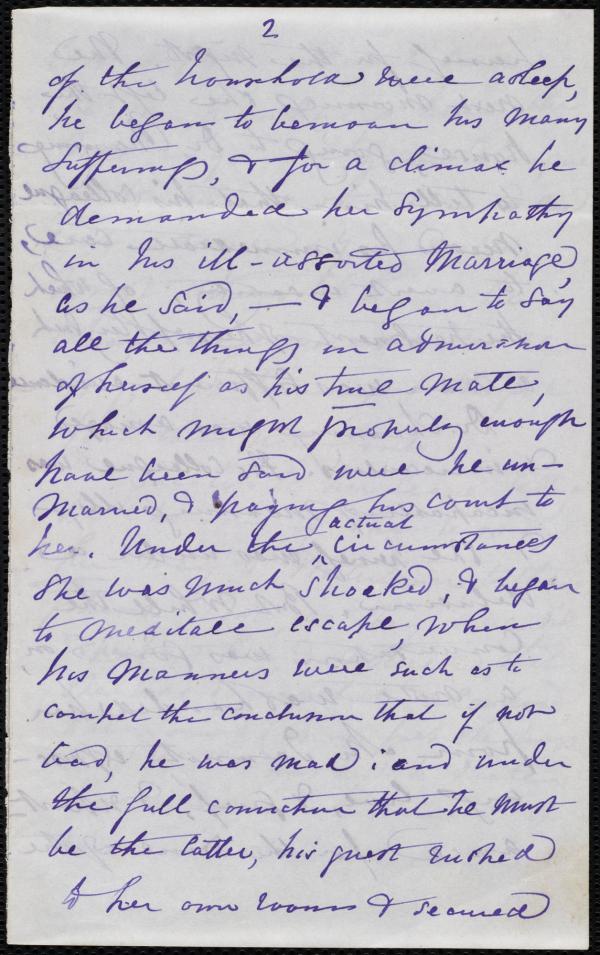 2
of the household were asleep,
he began to bemoan his many
sufferings, & for a climax he
demanded her sympathy
in his ill-assorted marriage,
as he said, — & began to say
all the things in admiration
of herself as his true mate,
which might properly enough
have been said were he un-
married, & paying his court to
her. Under the actual circumstances
she was much shocked, & began
to meditate escape, when
his manners were such as to
compel the conclusion that if not
bad, he was mad; and under
the full conviction that he must
be the latter, his guest rushed
to her own room & secured